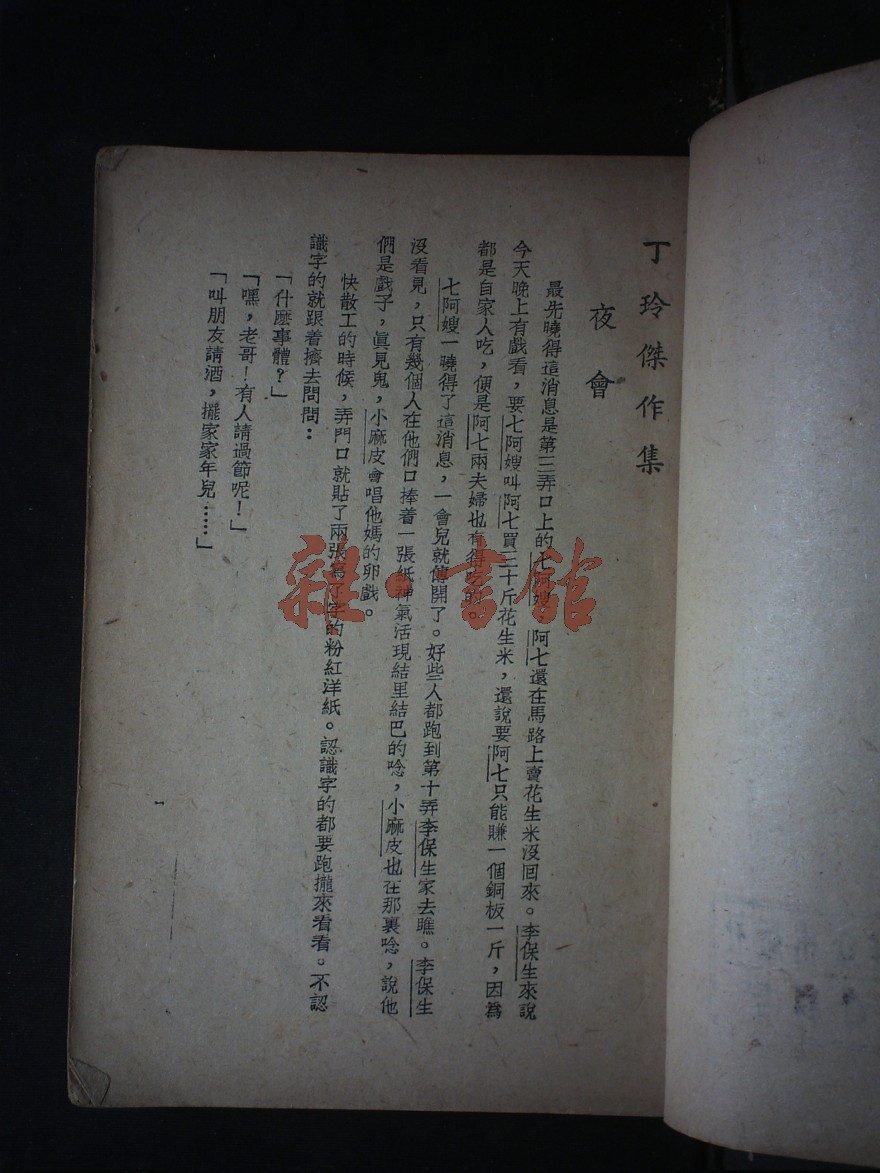 丁玲傑作集
夜會
最先曉得這消息是第三弄口上的七阿嫂，阿七還在馬路上賣花生米沒回來。李保生來說
今天晚上有戲看，要七阿嫂叫阿七買三十斤花生米，還說要阿七只能賺一個銅板一斤，因爲
都是自家人吃，便是阿七兩夫婦也有得吃的。
七阿嫂一曉得了這消息，一會兒就傳開了。好些人都跑到第十弄李保生家去瞧。李保生
沒看見，只有幾個人在他們口捧着一張紙神氣活現結里結巴的唸，小麻皮也在那裏唸，說他
們是戲子，眞見鬼，小麻皮會唱他媽的卵戲。
快散工的時候，弄門口就貼了兩張寫了字的粉紅洋紙。認識字的都要跑攏來看看。不認
識字的就跟着擠去問問：
「什麽事體？」
「嘿，老哥！有人請過節呢！」
「叫朋友請酒，擺家家年兒……」
一
雜·書館